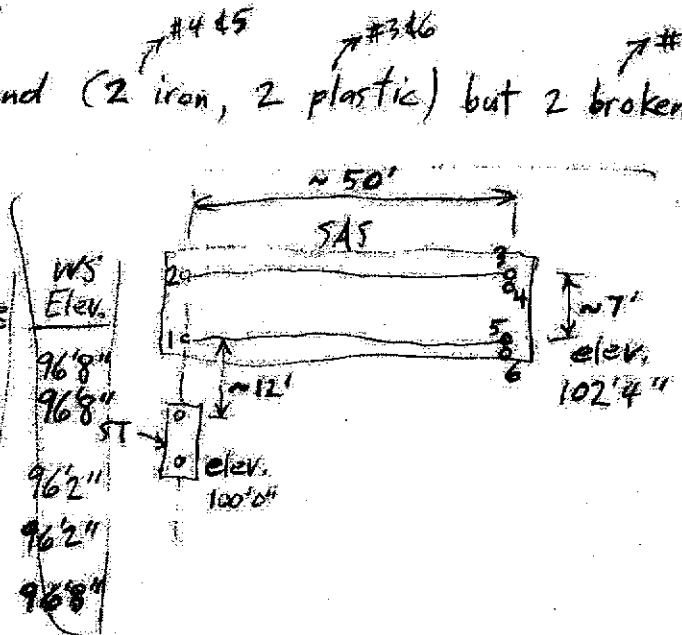 #4 &5 #3&6 #
nd (2 iron, 2 plastic) but 2 broken
~50'
SAS
WS
Elev.
96'8"
96'8"
96'2"
96'2"
96'8"
2
1
3
4
5
6
~7'
elev.
102'4"
~12'
ST
elev.
100'0"